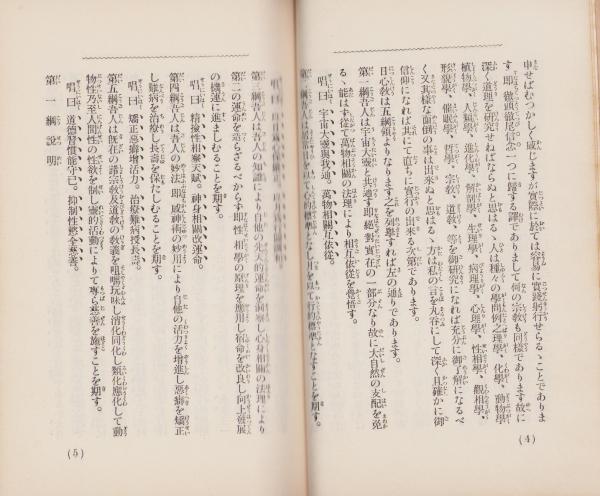 申せばむつかしく感じますが實際に於ては容易に實踐躬行せらるゝことでありま
す、即ち徹四徹尾信念一つに歸する譯でありまして何の宗敎も同樣であります故に
深く道理を研究せねばならぬと思はるゝ人は種々の學問例之理學、化學、動物學
植物學、人類學、進化學、解剖學、生理學、病理學、心理學、性相學、觀相學、
形貌學、催眠學、哲學、宗敎、道敎、等を御研究になれば充分に御了解になるべ
く又其樣な面倒の事は出來ぬと思はるゝ方は私の言を丸呑にして深く且確かに御
信仰になれば其にて直ちに實行の出來る次第であります。
日心敎は五綱領よりなります之を列擧すれば左の通りであります。
第一綱吾人は宇宙大靈と共通す即絕對實在の一部分なり故に大自然の支配を免
るゝ能はず從て萬物相關の法理により相互依從を覺悟す。
唱曰 宇宙大靈與我通。萬物相關互依從。
第二綱吾人は
第三綱吾人は吾人の知識により自他の先天的運命を洞察し心身相關の法理により
第二の運命を造らざるべからず即性相學の原理を應用し宿命を改良し向上發展
の機運に進ましむることを期す。
唱曰 精撿性相察天賦。神身相關改運命。
第四綱吾人は吾人の妙法即威神術の妙用により自他の活力を增進し惡癖を矯正
し難病を治療し長壽を保たしむることを期す。
唱曰 矯正惡癖增活力。治療難病授長壽。
第五綱吾人は既存の諸宗敎及道敎の敎義を咀嚼玩味し消化同化し類化應化して動
物性乃至人間性の性欲を制し靈的活動によりて專ら慈善を施すことを期す。
唱曰 道德習慣能守已。抑制性慾全慈善。
第一綱說明
(4)
(5)